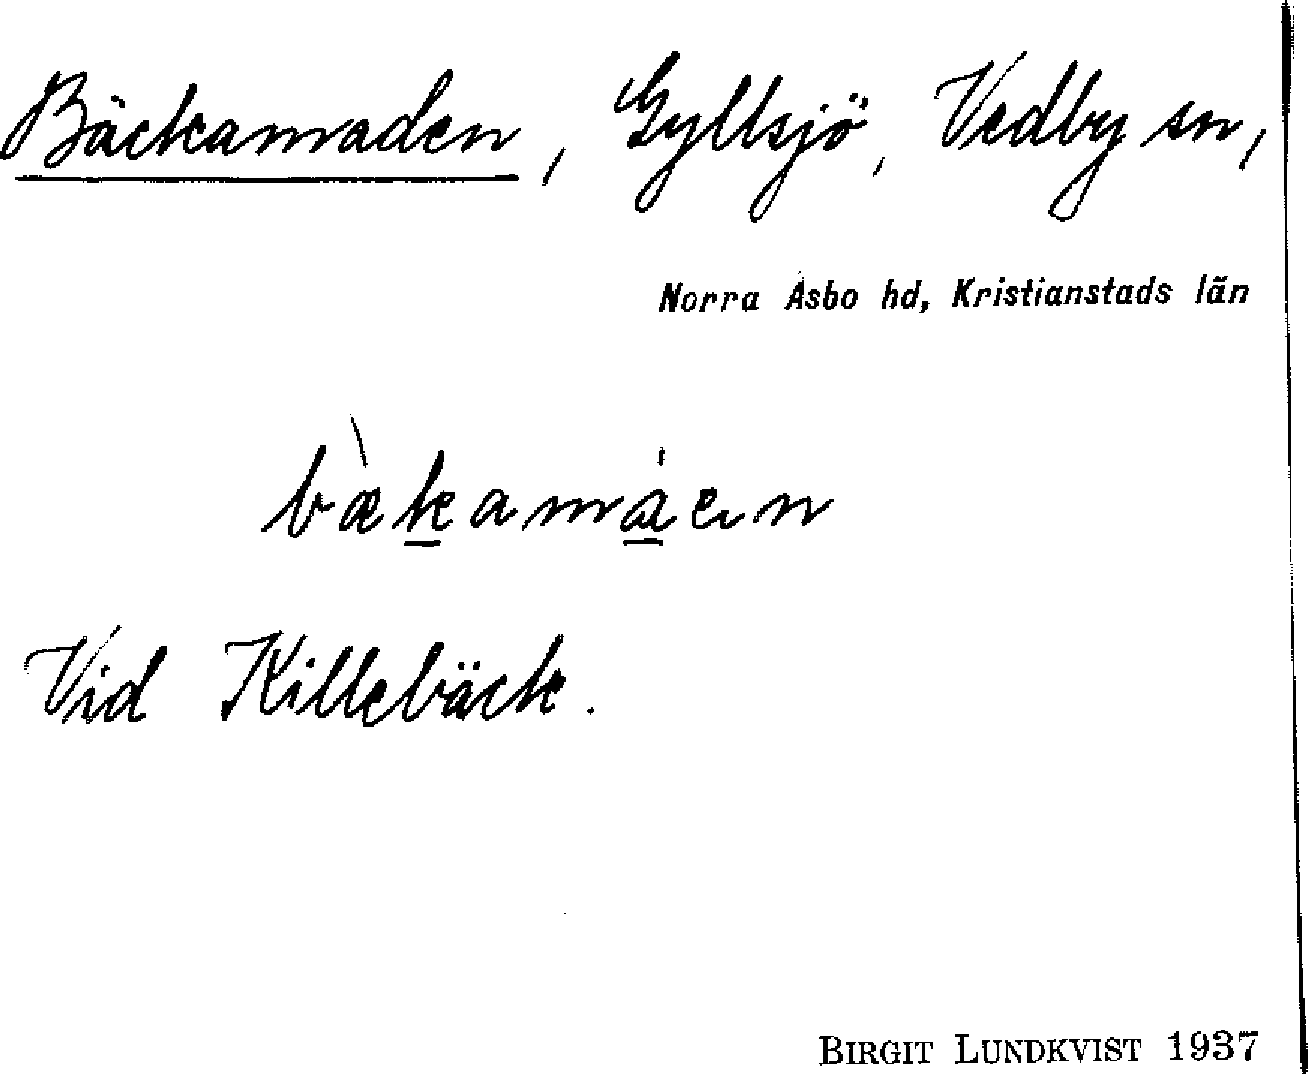 Bäckamaden, Gyllsjö, Vedby sn,
Norra Åsbo hd, Kristianstads län
bæ̀kamáen
Vid Killebäck.
BIRGIT LUNDKVIST 1937